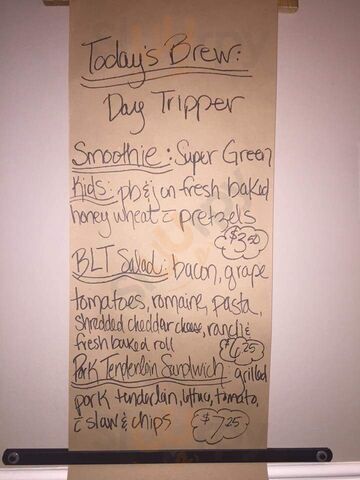 Today's Brew:
Day Tripper
Smoothie: Super Green
Kids: pb&j on fresh baked
honey wheat c̄ pretzels
$3.50
BLT Salad: bacon, grape
tomatoes, romaine, pasta,
shredded cheddar cheese, ranch &
fresh baked roll
$6.25
Pork Tenderloin Sandwich: grilled
pork tenderloin, lettuce, tomato,
c̄ slaw & chips
$7.25